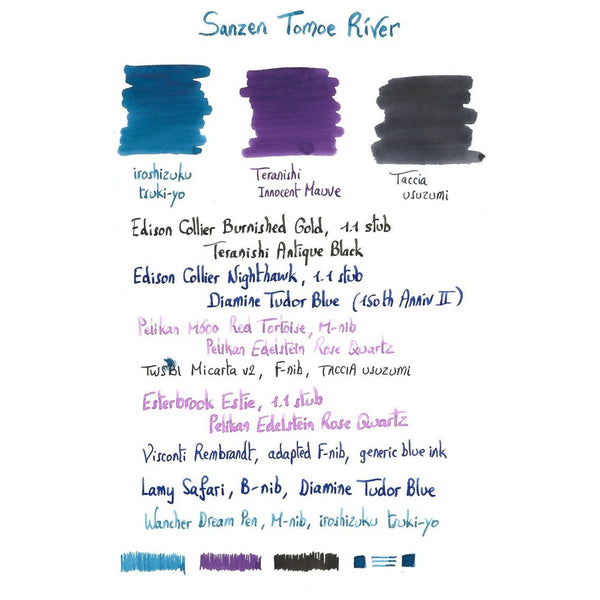 Sanzen Tomoe River
iroshizuku
tsuki-yo
Teranishi
Innocent Mauve
Taccia
usuzumi
Edison Collier Burnished Gold, 1.1 stub
Teranishi Antique Black
Edison Collier Nighthawk, 1.1 stub
Diamine Tudor Blue (150th Anniv II)
Pelikan M600 Red Tortoise, M-nib
Pelikan Edelstein Rose Quartz
TWSBI Micarta v2, F-nib, TACCIA usuzumi
Esterbrook Estie, 1.1 stub
Pelikan Edelstein Rose Quartz
Visconti Rembrandt, adapted F-nib, generic blue ink
Lamy Safari, B-nib, Diamine Tudor Blue
Wancher Dream Pen, M-nib, iroshizuku tsuki-yo